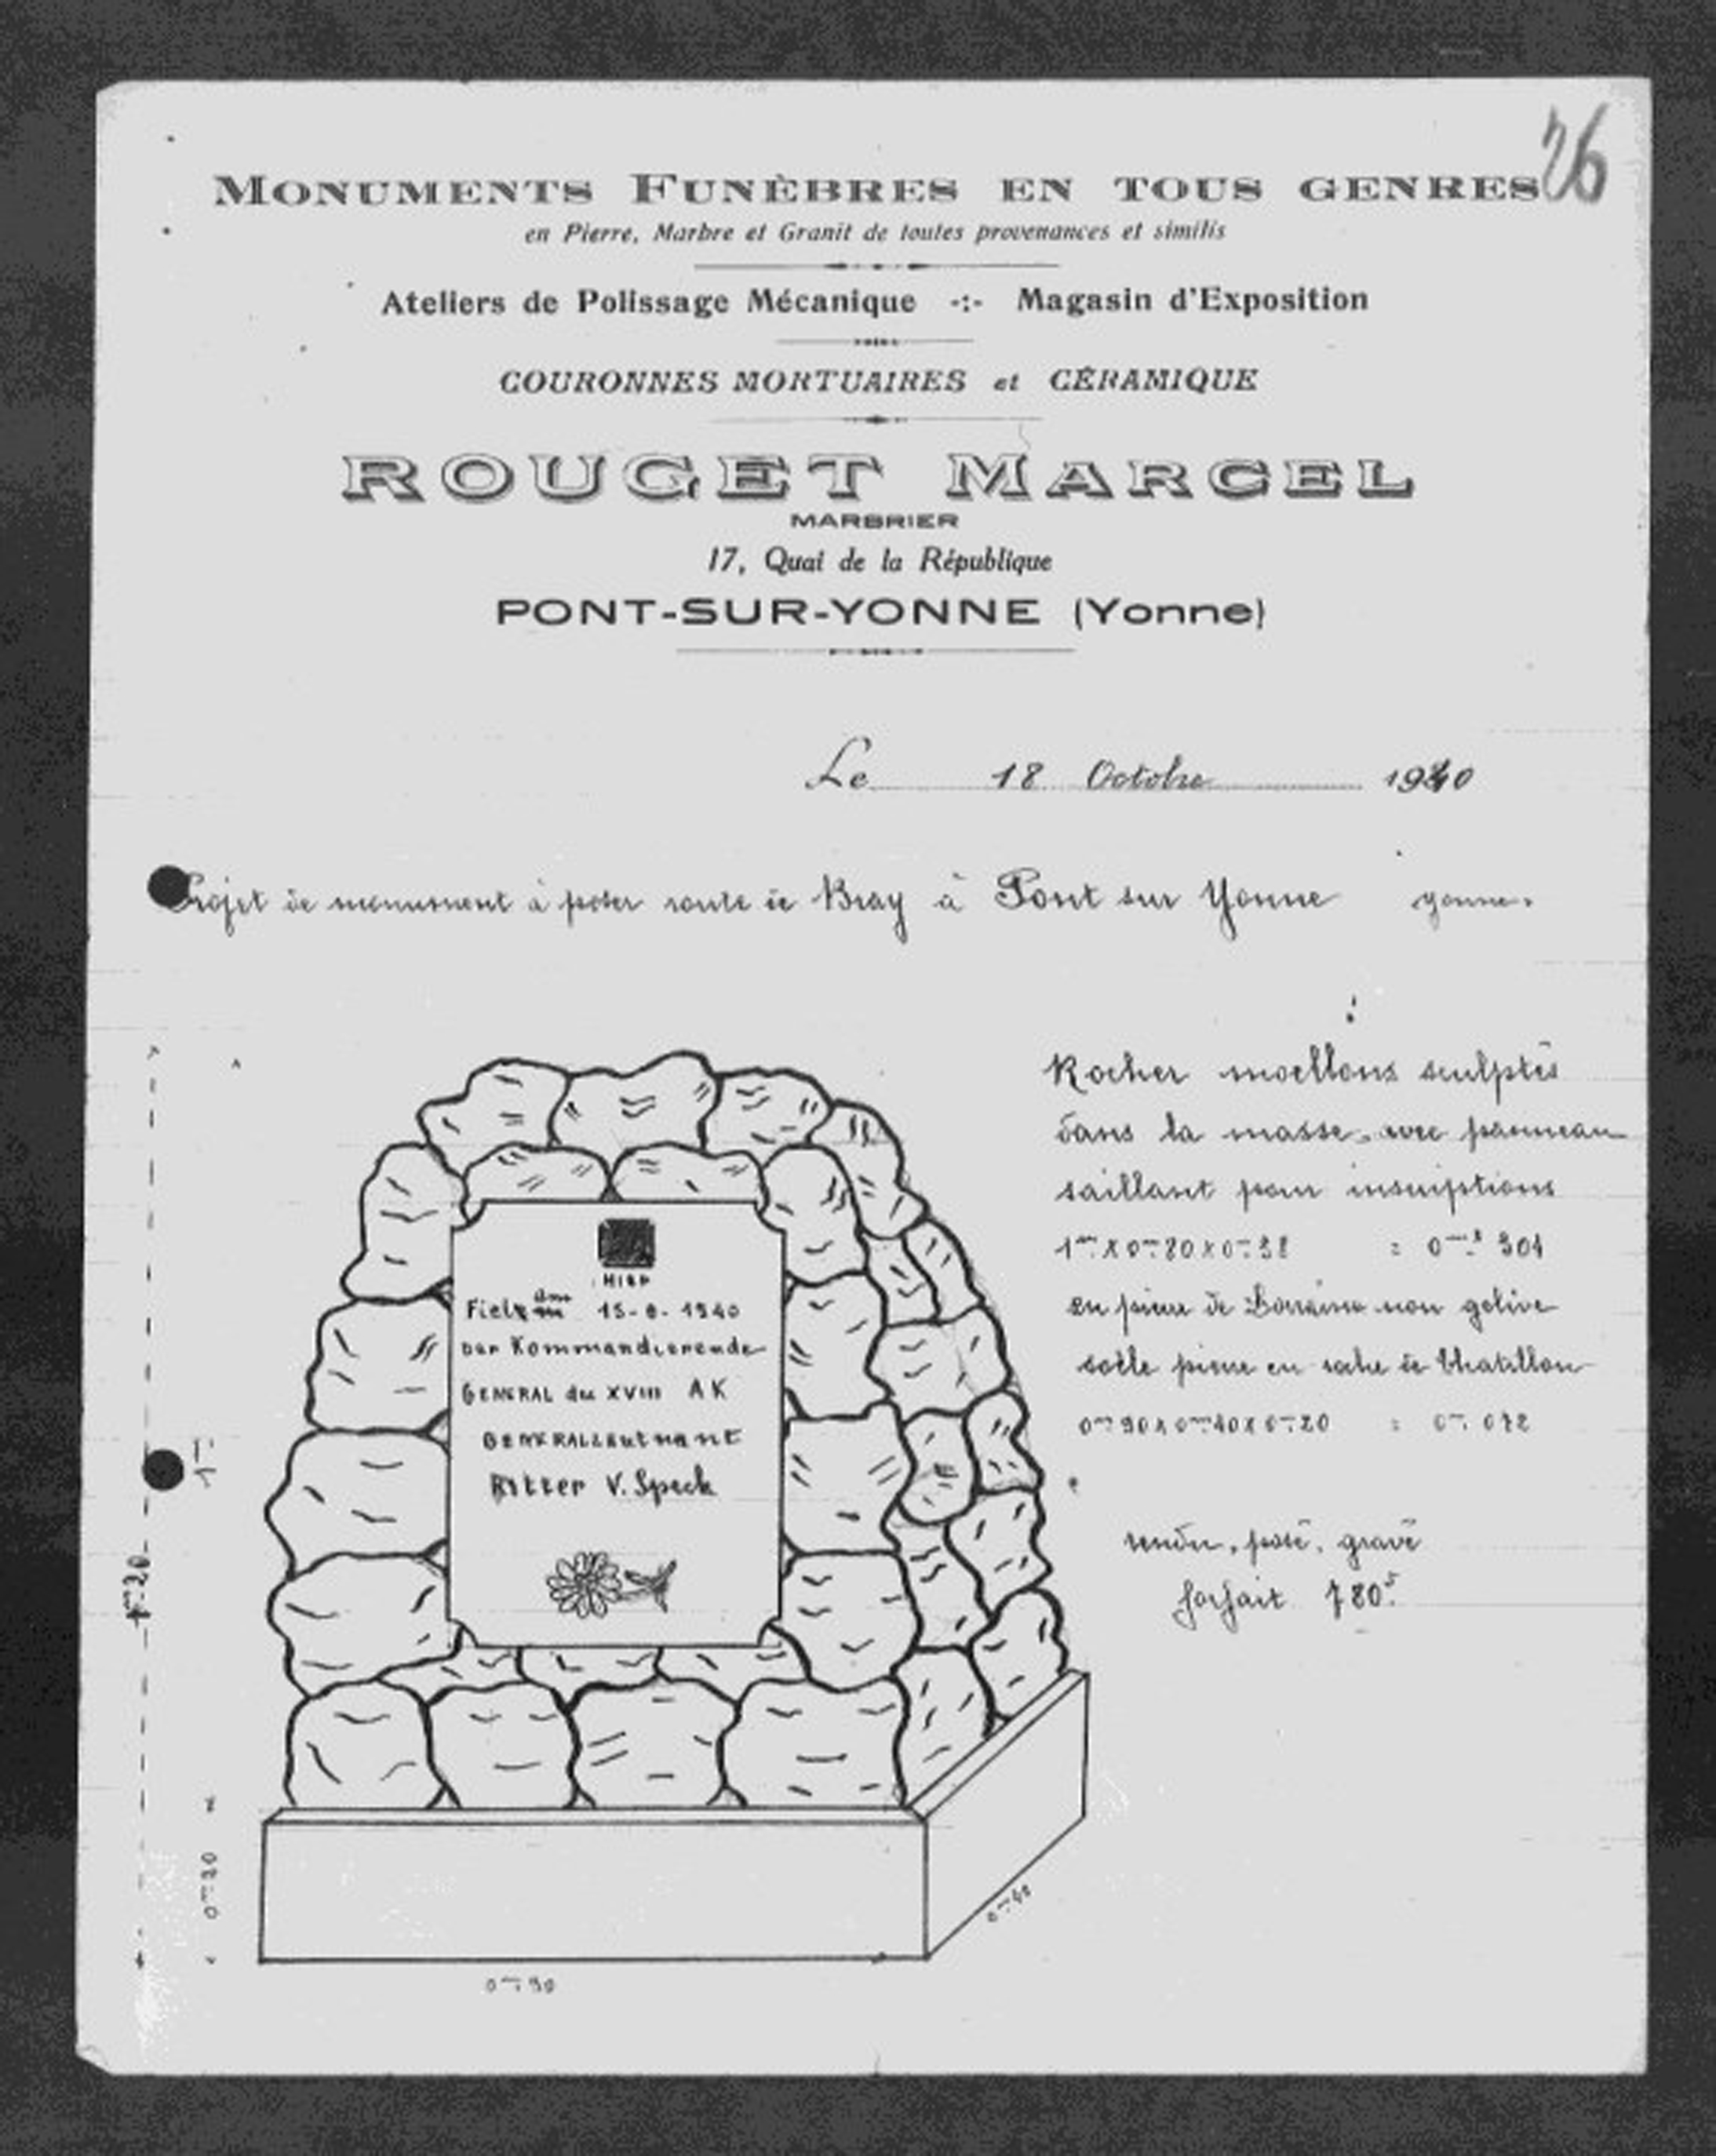 26
MONUMENTS FUNÈBRES EN TOUS GENRES
en Pierre, Marbre et Granit de toutes provenances et similis
Ateliers de Polissage Mécanique -:- Magasin d'Exposition
COURONNES MORTUAIRES et CÉRAMIQUE
ROUGET MARCEL
MARBRIER
17, Quai de la République
PONT-SUR-YONNE (Yonne)
Le 18 Octobre 1940
Projet de monument à poser route de Bray à Pont sur Yonne yonne.
Rocher moellons sculptés
dans la masse, avec panneau
saillant pour inscriptions
1m X 0m80 X 0m38 = 0m3 304
en pierre de non gélive
socle pierre en roche de Chatillon
0m90 X 0m40 X 0m20 = 0m 072
rendu, posé, gravé
forfait 780f
HIER
Fiel am 15-6-1940
der Kommandierende
GENERAL du XVIII AK
GENERALLEUTNANT
Ritter V. Speck
1m
1m20
0m20
0m40
0m90